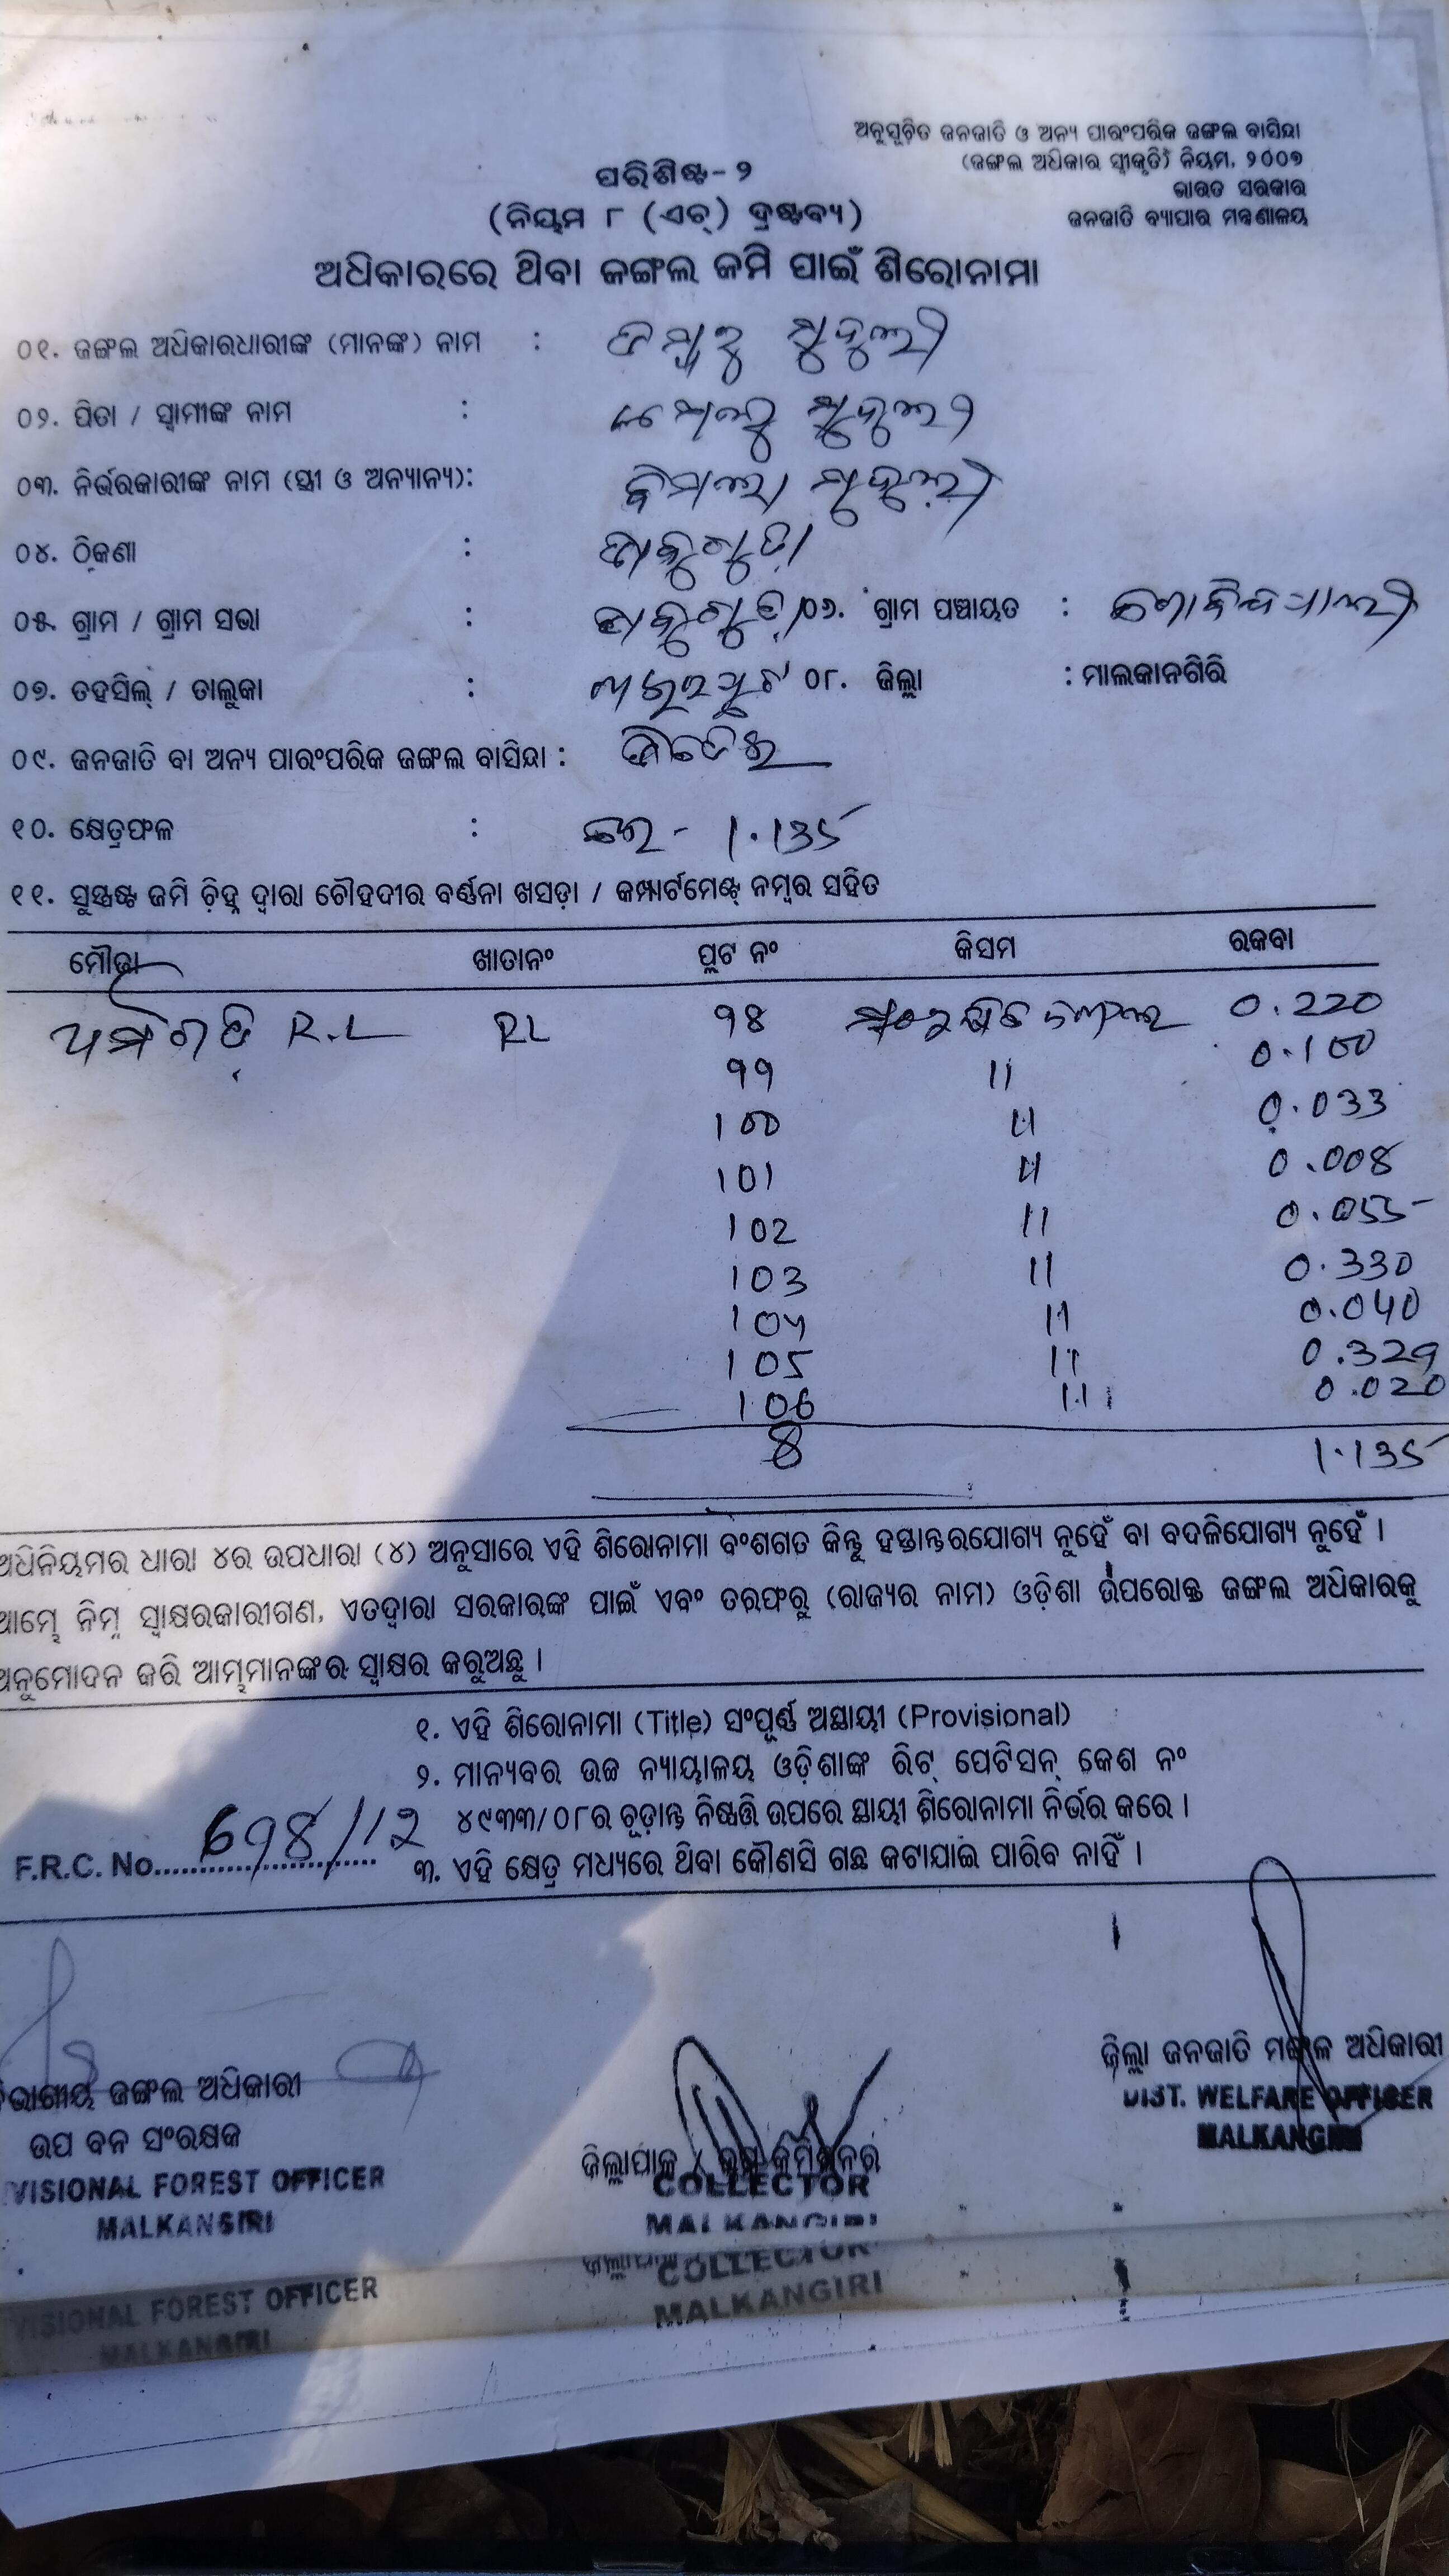 ଅନୁସୂଚିତ ଜନଜାତି ଓ ଅନ୍ୟ ପାରଂପରିକ ଜଙ୍ଗଲ ବାସିନ୍ଦା
(ଜଙ୍ଗଲ ଅଧିକାର ସ୍ୱୀକୃତି) ନିୟମ, ୨୦୦୭
ଭାରତ ସରକାର
ଜନଜାତି ବ୍ୟାପାର ମନ୍ତ୍ରଣାଳୟ
ପରିଶିଷ୍ଟ-୨
(ନିୟମ ୮ (ଏଚ୍) ଦ୍ରଷ୍ଟବ୍ୟ)
ଅଧିକାରରେ ଥିବା ଜଙ୍ଗଲ ଜମି ପାଇଁ ଶିରୋନାମା
୦୧. ଜଙ୍ଗଲ ଅଧିକାରଧାରୀଙ୍କ (ମାନଙ୍କ) ନାମ : ମୁଦୁଲୀ
୦୨. ପିତା / ସ୍ୱାମୀଙ୍କ ନାମ : ମୁଦୁଲୀ
୦୩. ନିର୍ଭରକାରୀଙ୍କ ନାମ (ସ୍ତ୍ରୀ ଓ ଅନ୍ୟାନ୍ୟ): ବିମଲା ମୁଦୁଲୀ
୦୪. ଠିକଣା :
୦୫. ଗ୍ରାମ / ଗ୍ରାମ ସଭା : ୦୬. ଗ୍ରାମ ପଞ୍ଚାୟତ : ଗୋବିନ୍ଦପାଲୀ
୦୭. ତହସିଲ୍ / ତାଲୁକା : ଖଇରପୁଟ ୦୮. ଜିଲ୍ଲା : ମାଲକାନଗିରି
୦୯. ଜନଜାତି ବା ଅନ୍ୟ ପାରଂପରିକ ଜଙ୍ଗଲ ବାସିନ୍ଦା :
୧୦. କ୍ଷେତ୍ରଫଳ : 1.135
୧୧. ସୁସ୍ପଷ୍ଟ ଜମି ଚିହ୍ନ ଦ୍ୱାରା ଚୌହଦୀର ବର୍ଣ୍ଣନା ଖସଡ଼ା / କମ୍ପାର୍ଟମେଣ୍ଟ୍ ନମ୍ବର ସହିତ
ମୌଜା ଖାତାନଂ ପ୍ଲଟ ନଂ କିସମ ରକବା
R.L RL ୨୪ ଜଙ୍ଗଲ 0.220
୨୨ 11 0.100
100 11 0.033
101 11 0.008
102 11 0.055
103 11 0.330
104 11 0.040
105 11 0.329
106 11 0.020
8 1.135
ଅଧିନିୟମର ଧାରା ୪ର ଉପଧାରା (୪) ଅନୁସାରେ ଏହି ଶିରୋନାମା ବଂଶଗତ କିନ୍ତୁ ହସ୍ତାନ୍ତରଯୋଗ୍ୟ ନୁହେଁ ବା ବଦଳିଯୋଗ୍ୟ ନୁହେଁ ।
ଆମ୍ଭେ ନିମ୍ନ ସ୍ୱାକ୍ଷରକାରୀଗଣ, ଏତଦ୍ୱାରା ସରକାରଙ୍କ ପାଇଁ ଏବଂ ତରଫରୁ (ରାଜ୍ୟର ନାମ) ଓଡ଼ିଶା ଉପରୋକ୍ତ ଜଙ୍ଗଲ ଅଧିକାରକୁ
ଅନୁମୋଦନ କରି ଆମ୍ଭମାନଙ୍କର ସ୍ୱାକ୍ଷର କରୁଅଛୁ ।
୧. ଏହି ଶିରୋନାମା (Title) ସଂପୂର୍ଣ୍ଣ ଅସ୍ଥାୟୀ (Provisional)
୨. ମାନ୍ୟବର ଉଚ୍ଚ ନ୍ୟାୟାଳୟ ଓଡ଼ିଶାଙ୍କ ରିଟ୍ ପେଟିସନ୍ କେଶ ନଂ
୪୯୩୩/୦୮ର ଚୂଡ଼ାନ୍ତ ନିଷ୍ପତ୍ତି ଉପରେ ସ୍ଥାୟୀ ଶିରୋନାମା ନିର୍ଭର କରେ ।
F.R.C. No....................
୩. ଏହି କ୍ଷେତ୍ର ମଧ୍ୟରେ ଥିବା କୌଣସି ଗଛ କଟାଯାଇ ପାରିବ ନାହିଁ ।
ଜିଲ୍ଲା ଜନଜାତି ମଙ୍ଗଳ ଅଧିକାରୀ
DIST. WELFARE OFFICER
MALKANGIRI
ବିଭାଗୀୟ ଜଙ୍ଗଲ ଅଧିକାରୀ
ଉପ ବନ ସଂରକ୍ଷକ
VISIONAL FOREST OFFICER
MALKANGIRI
ଜିଲ୍ଲାପାଳ / ଉପ କମିଶନର
COLLECTOR
MALKANGIRI
VISIONAL FOREST OFFICER
MALKANGIRI
COLLECTOR
MALKANGIRI